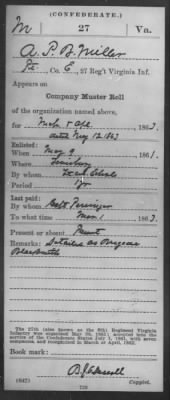 (CONFEDERATE.)
M 27 Va.
A. P. B. Miller
Co. E, 27 Reg't Virginia Inf.
Appears on
Company Muster Roll
of the organization named above,
for Mch & Apl, 1863.
dated May 12 1863
Enlisted:
When May 9, 1861.
Where
By whom
Period Yr
Last paid:
By whom Capt.
To what time Mar 1, 1863.
Present or absent
Remarks: Detailed as Brigade
Blacksmith
The 27th (also known as the 6th) Regiment Virginia
Infantry was organized May 30, 1861; accepted into the
service of the Confederate States July 1, 1861, with seven
companies and reorganized in March or April, 1862.
Book mark:
(642)
Copyist.